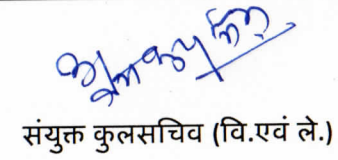 संयुक्त कुलसचिव (वि.एवं ले.)